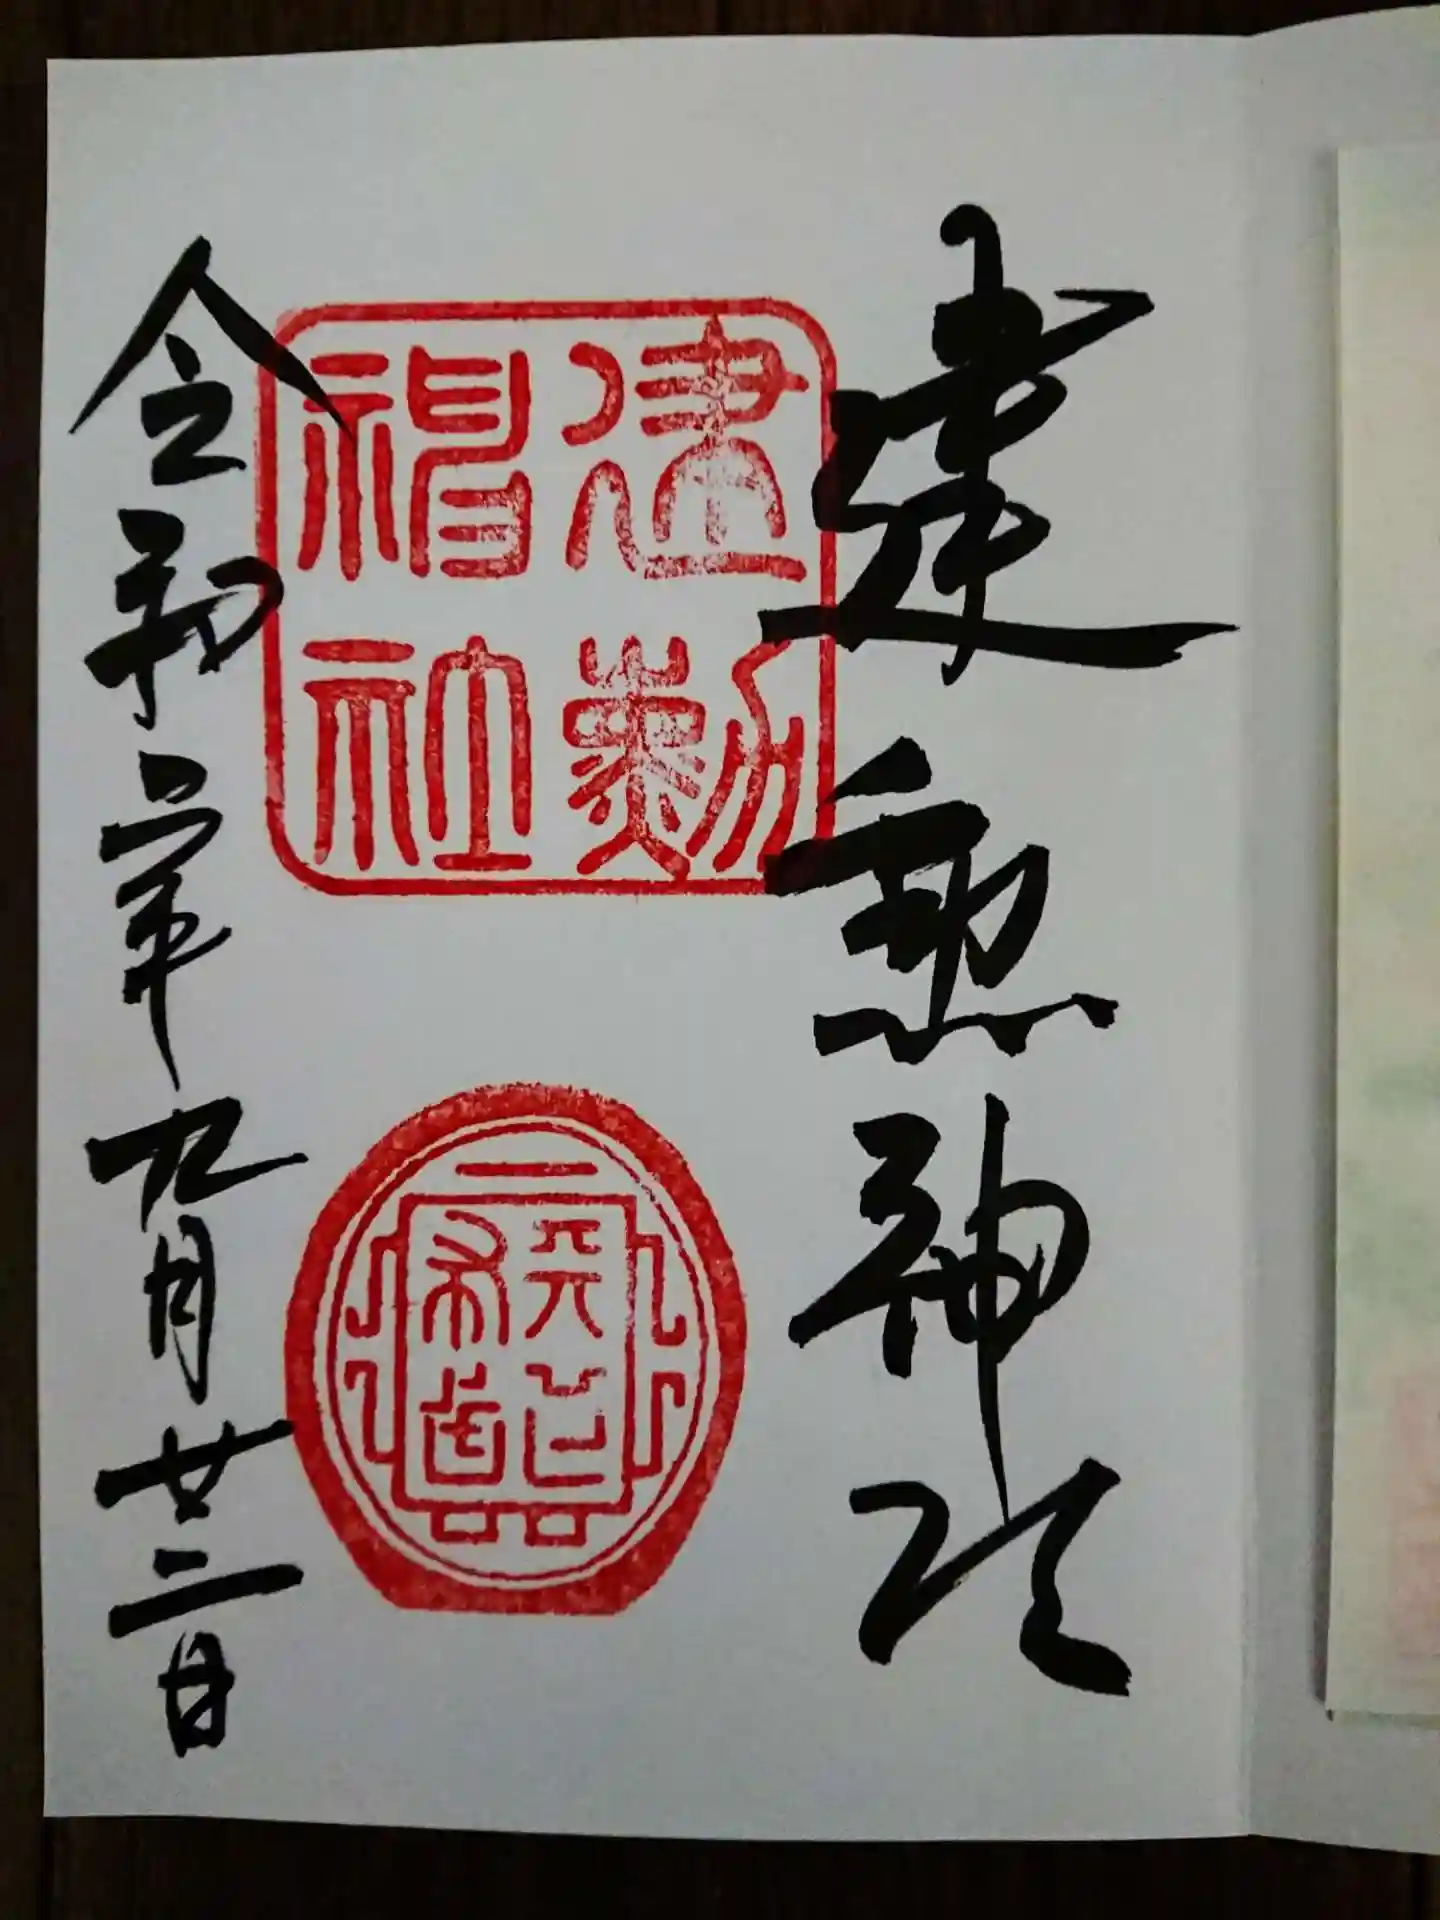 建勲神社
建勲
神社
天下
布武
令和二年九月廿二日